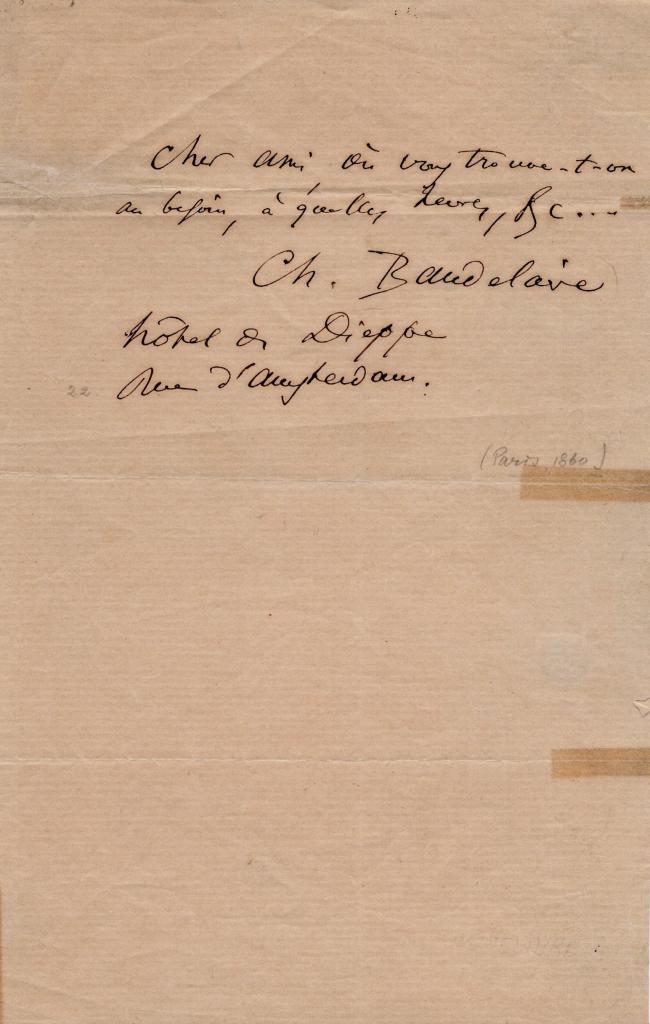 Cher ami, où vous trouve-t-on
au besoin, à quelles heures, &c...
Ch. Baudelaire
hôtel de Dieppe
22. Rue d'Amsterdam.
(Paris, 1860)